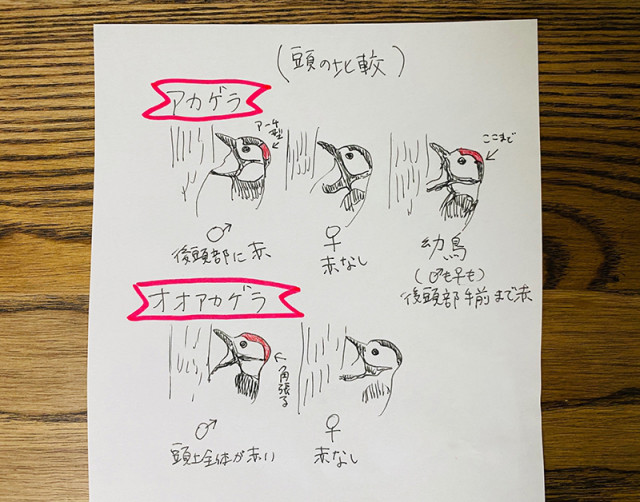 (頭の比較)
アカゲラ
アーチ型
ここまで
♂
後頭部に赤
♀
赤なし
幼鳥
(♂も♀も)
後頭部手前まで赤
オオアカゲラ
角張る
♂
頭上全体が赤い
♀
赤なし